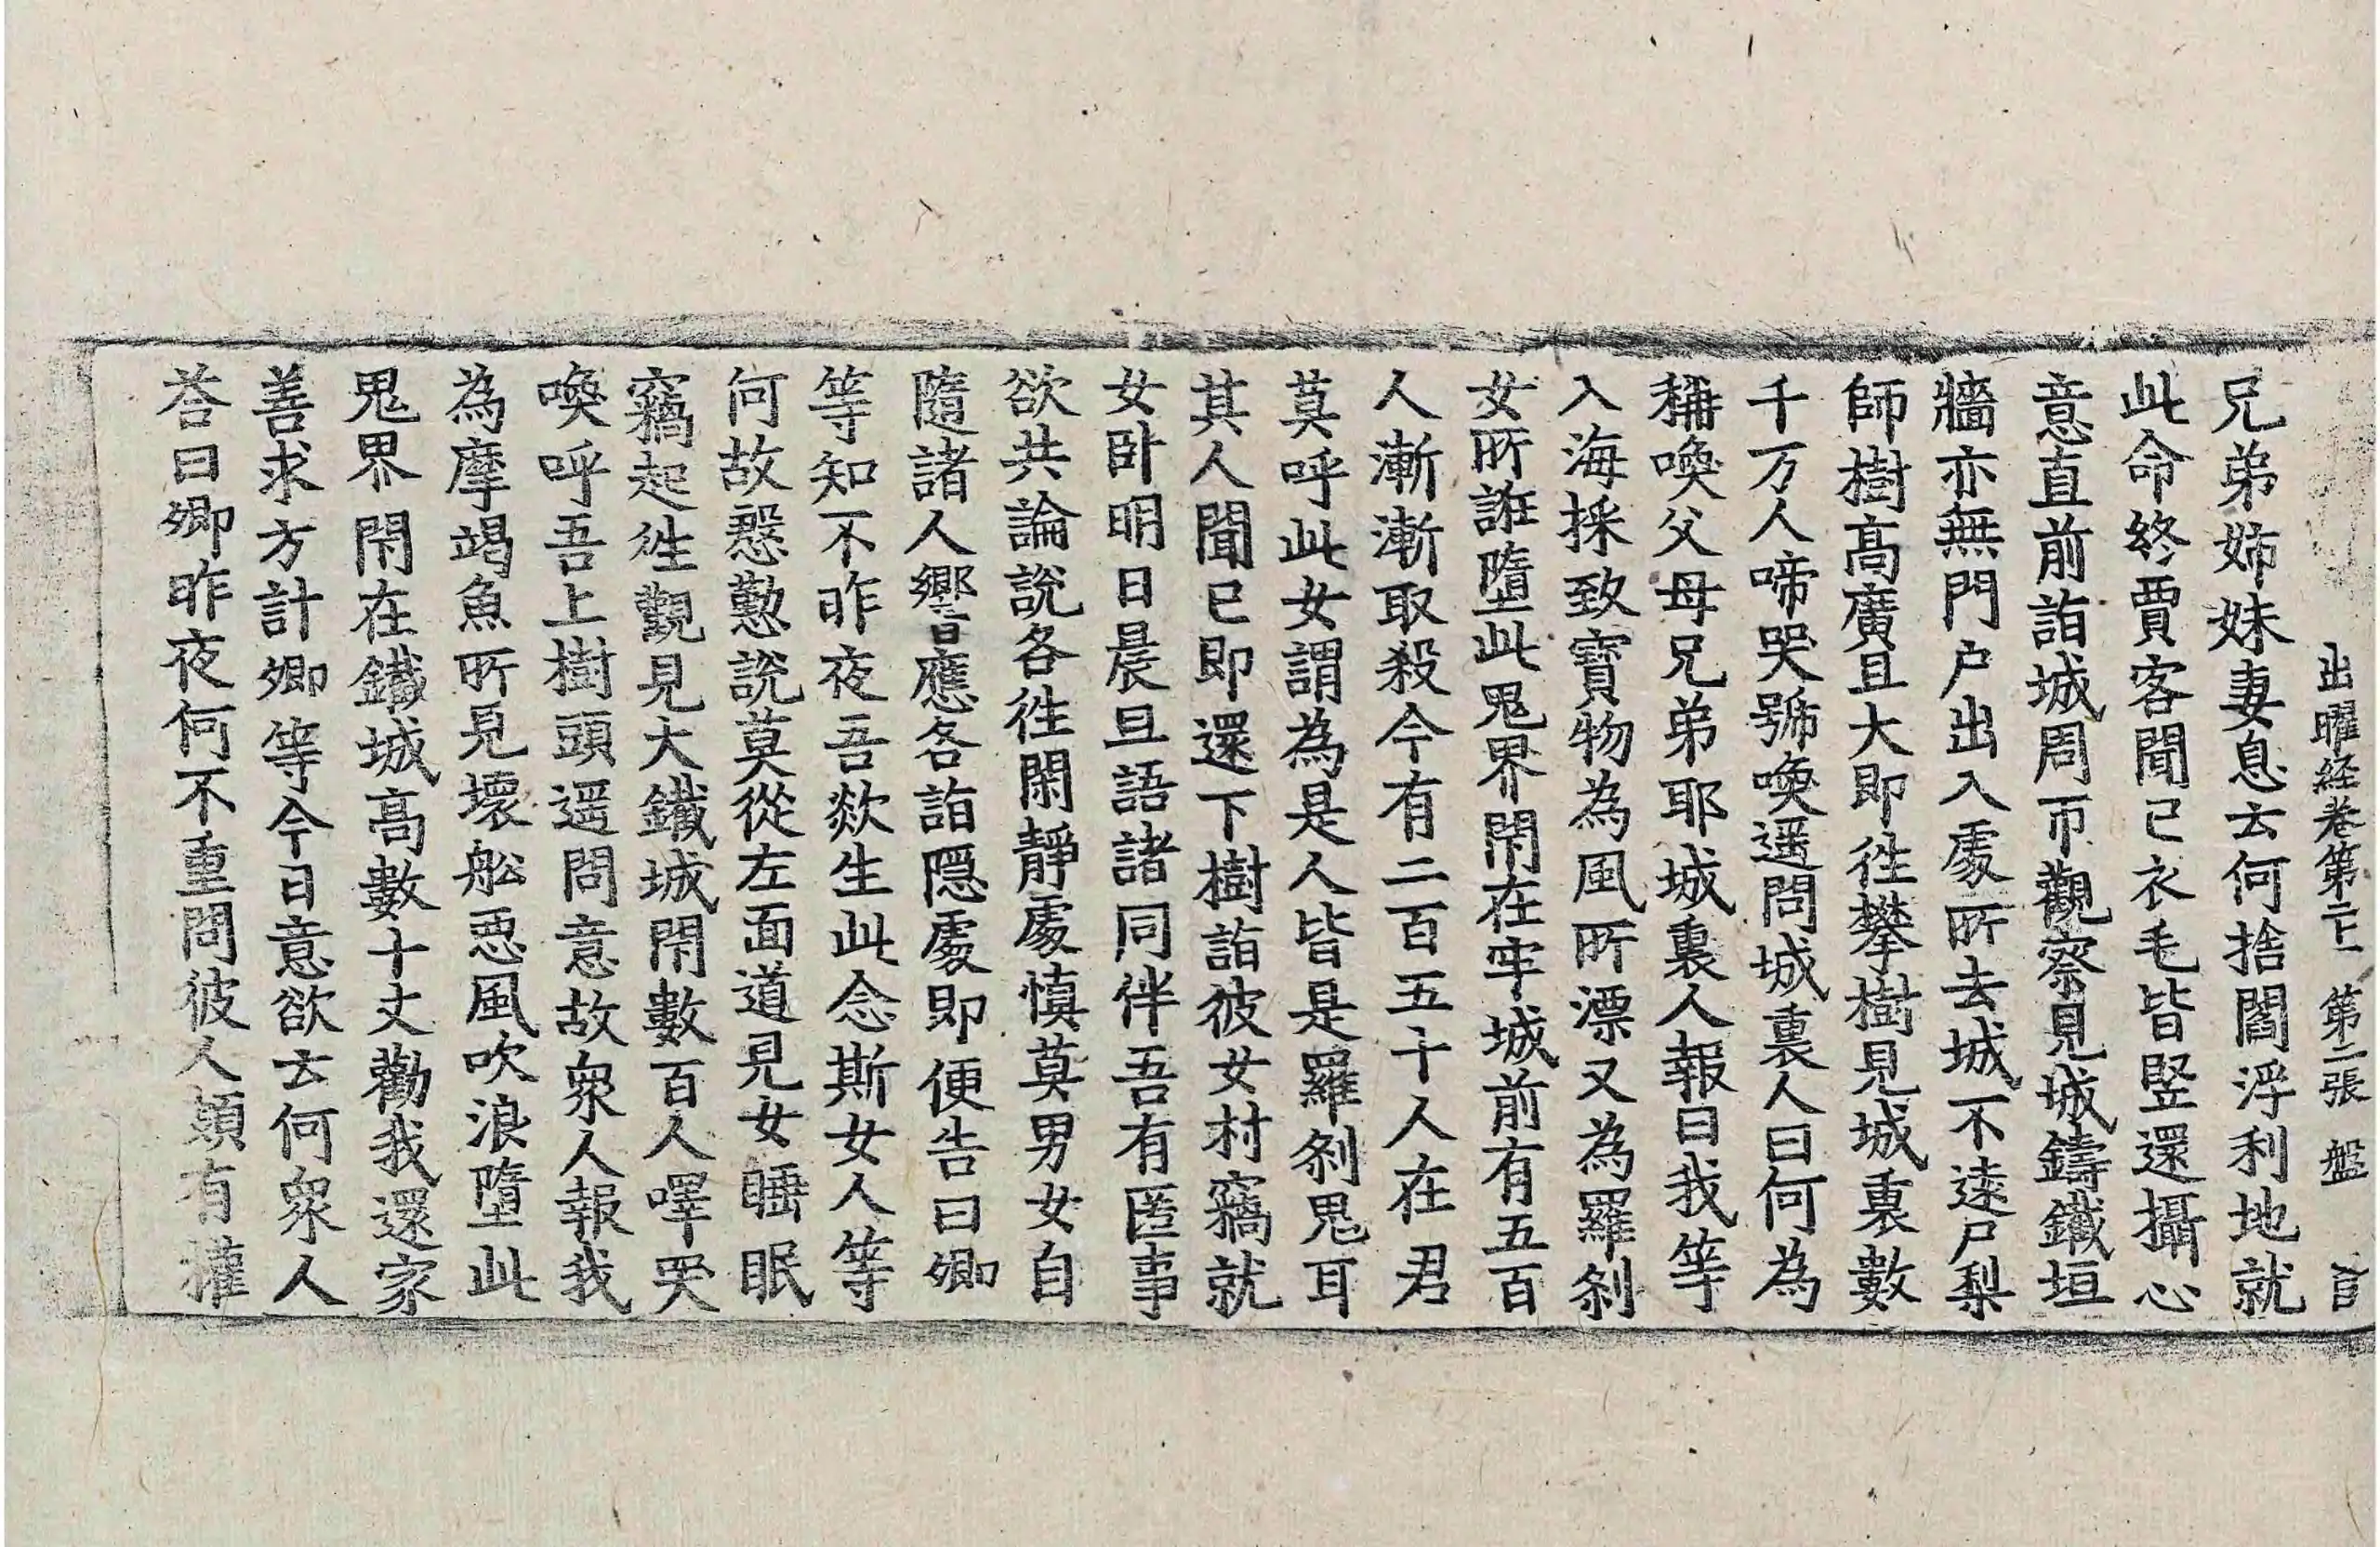 出曜経卷第二十一　第二張　盤
兄弟姉妹妻息去何捨閻浮利地就
此命終賈客聞已衣毛皆竪還攝心
意直前詣城周帀觀察見城鑄鐵垣
牆亦無門户出入處所去城不遠尸梨
師樹高廣且大即徃攀樹見城裏數
千万人啼哭號喚遥問城裏人曰何為
稱喚父母兄弟耶城裏人報曰我等
入海採致寶物為風所漂又為羅刹
女所誑墮此鬼界閇在牢城前有五百
人漸漸取殺今有二百五十人在君
莫呼此女謂為是人皆是羅刹鬼耳
其人聞已即還下樹詣彼女村竊就
女卧明日晨旦語諸同伴吾有匿事
欲共論說各徃閑靜處慎莫男女自
隨諸人響應各詣隱處即便告曰卿
等知不昨夜吾欻生此念斯女人等
何故慇懃說莫從左面道見女睡眠
竊起徃觀見大鐵城閇數百人㘁哭
喚呼吾上樹頭遥問意故衆人報我
為摩竭魚所見壞舩惡風吹浪墮此
鬼界閇在鐵城高數十丈勸我還家
善求方計卿等今日意欲去何衆人
荅曰卿昨夜何不重問彼人頗有權